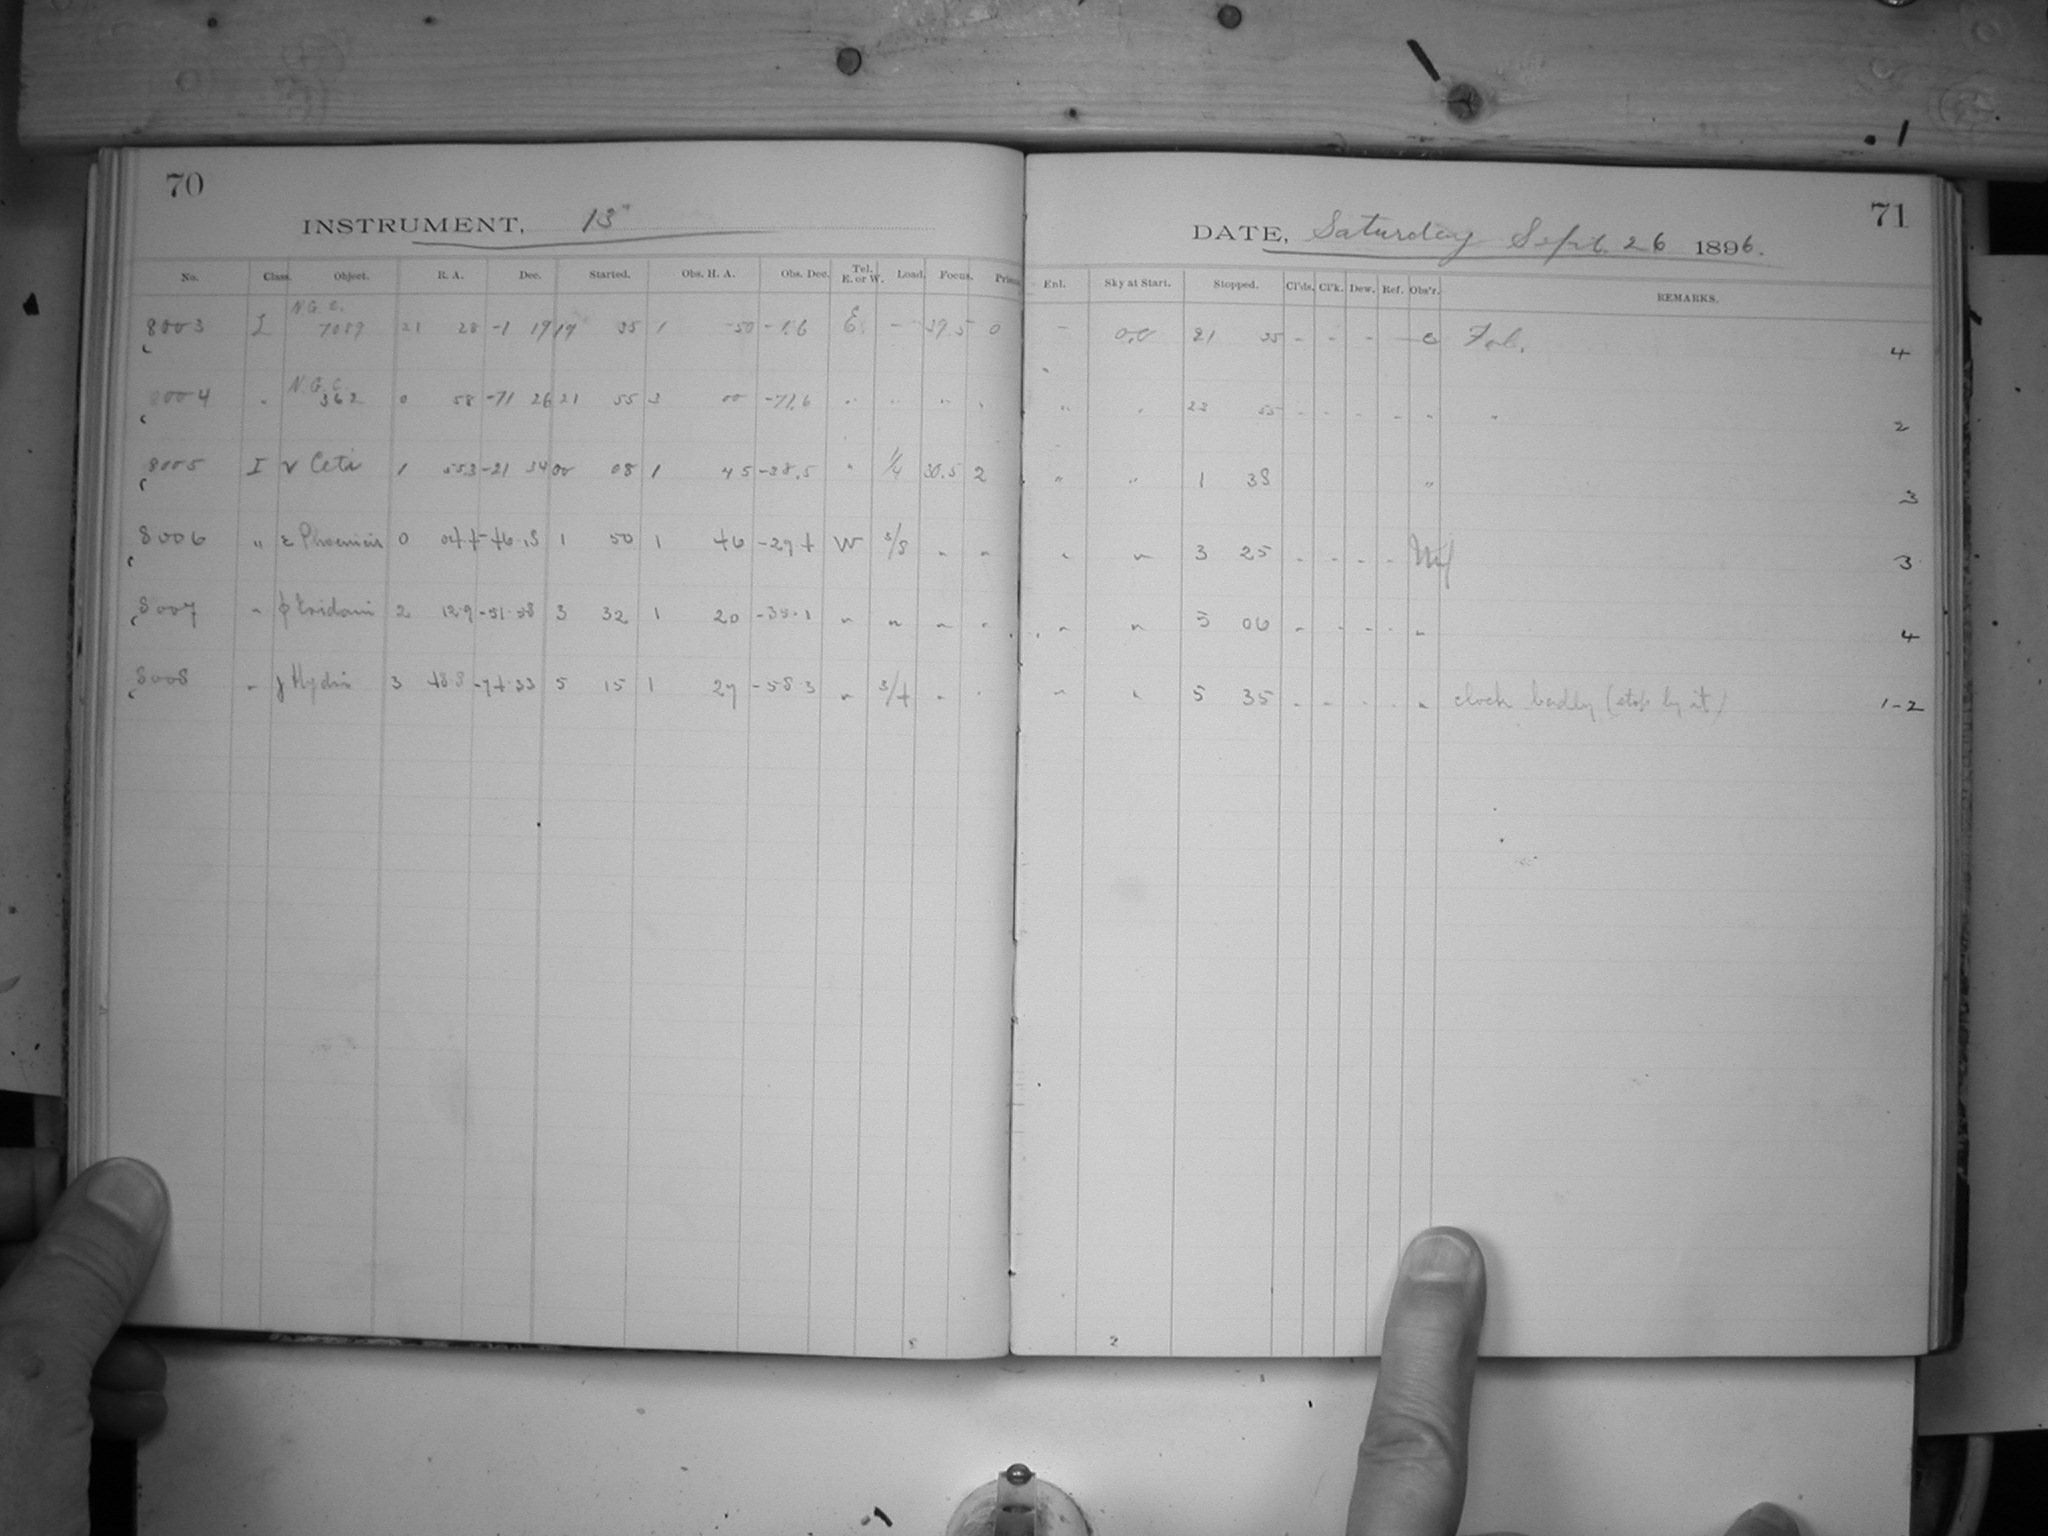 70
INSTRUMENT, 13"
No. Class. Object. R. A. Dec. Started. Obs. H. A. Obs. Dec. Tel. E. or W. Load. Focus. Prism
N.G.C.
8003 L 7089 21 28 -1 19 19 35 1 -50 -1.6 E - 39.5 0
N.G.C.
8004 " 362 0 58 -71 26 21 55 3 00 -71.6 " " " "
8005 I ν Ceti 1 55.3 -21 34 00 08 1 45 -38.5 " 1/4 30.5 2
8006 " ε Phoenicis 0 04.4 -46.18 1 50 1 46 -29 4 W 3/8 " "
8007 " φ Eridani 2 12.9 -51.58 3 32 1 20 -35.1 " " " "
8008 " γ Hydri 3 48.8 -74.33 5 15 1 27 -58 3 " 3/4 " "
71
DATE, Saturday Sept. 26 1896.
Enl. Sky at Start. Stopped. Cl'ds. Cl'k. Dew. Ref. Obs'r. REMARKS.
- 0.0 21 35 - - - - C 4
" " 23 55 - - - - " " 2
" " 1 38 " 3
" " 3 25 - - - - 3
" " 5 06 - - - - " 4
" " 5 35 - - - - " clock badly (stop by it) 1-2
2